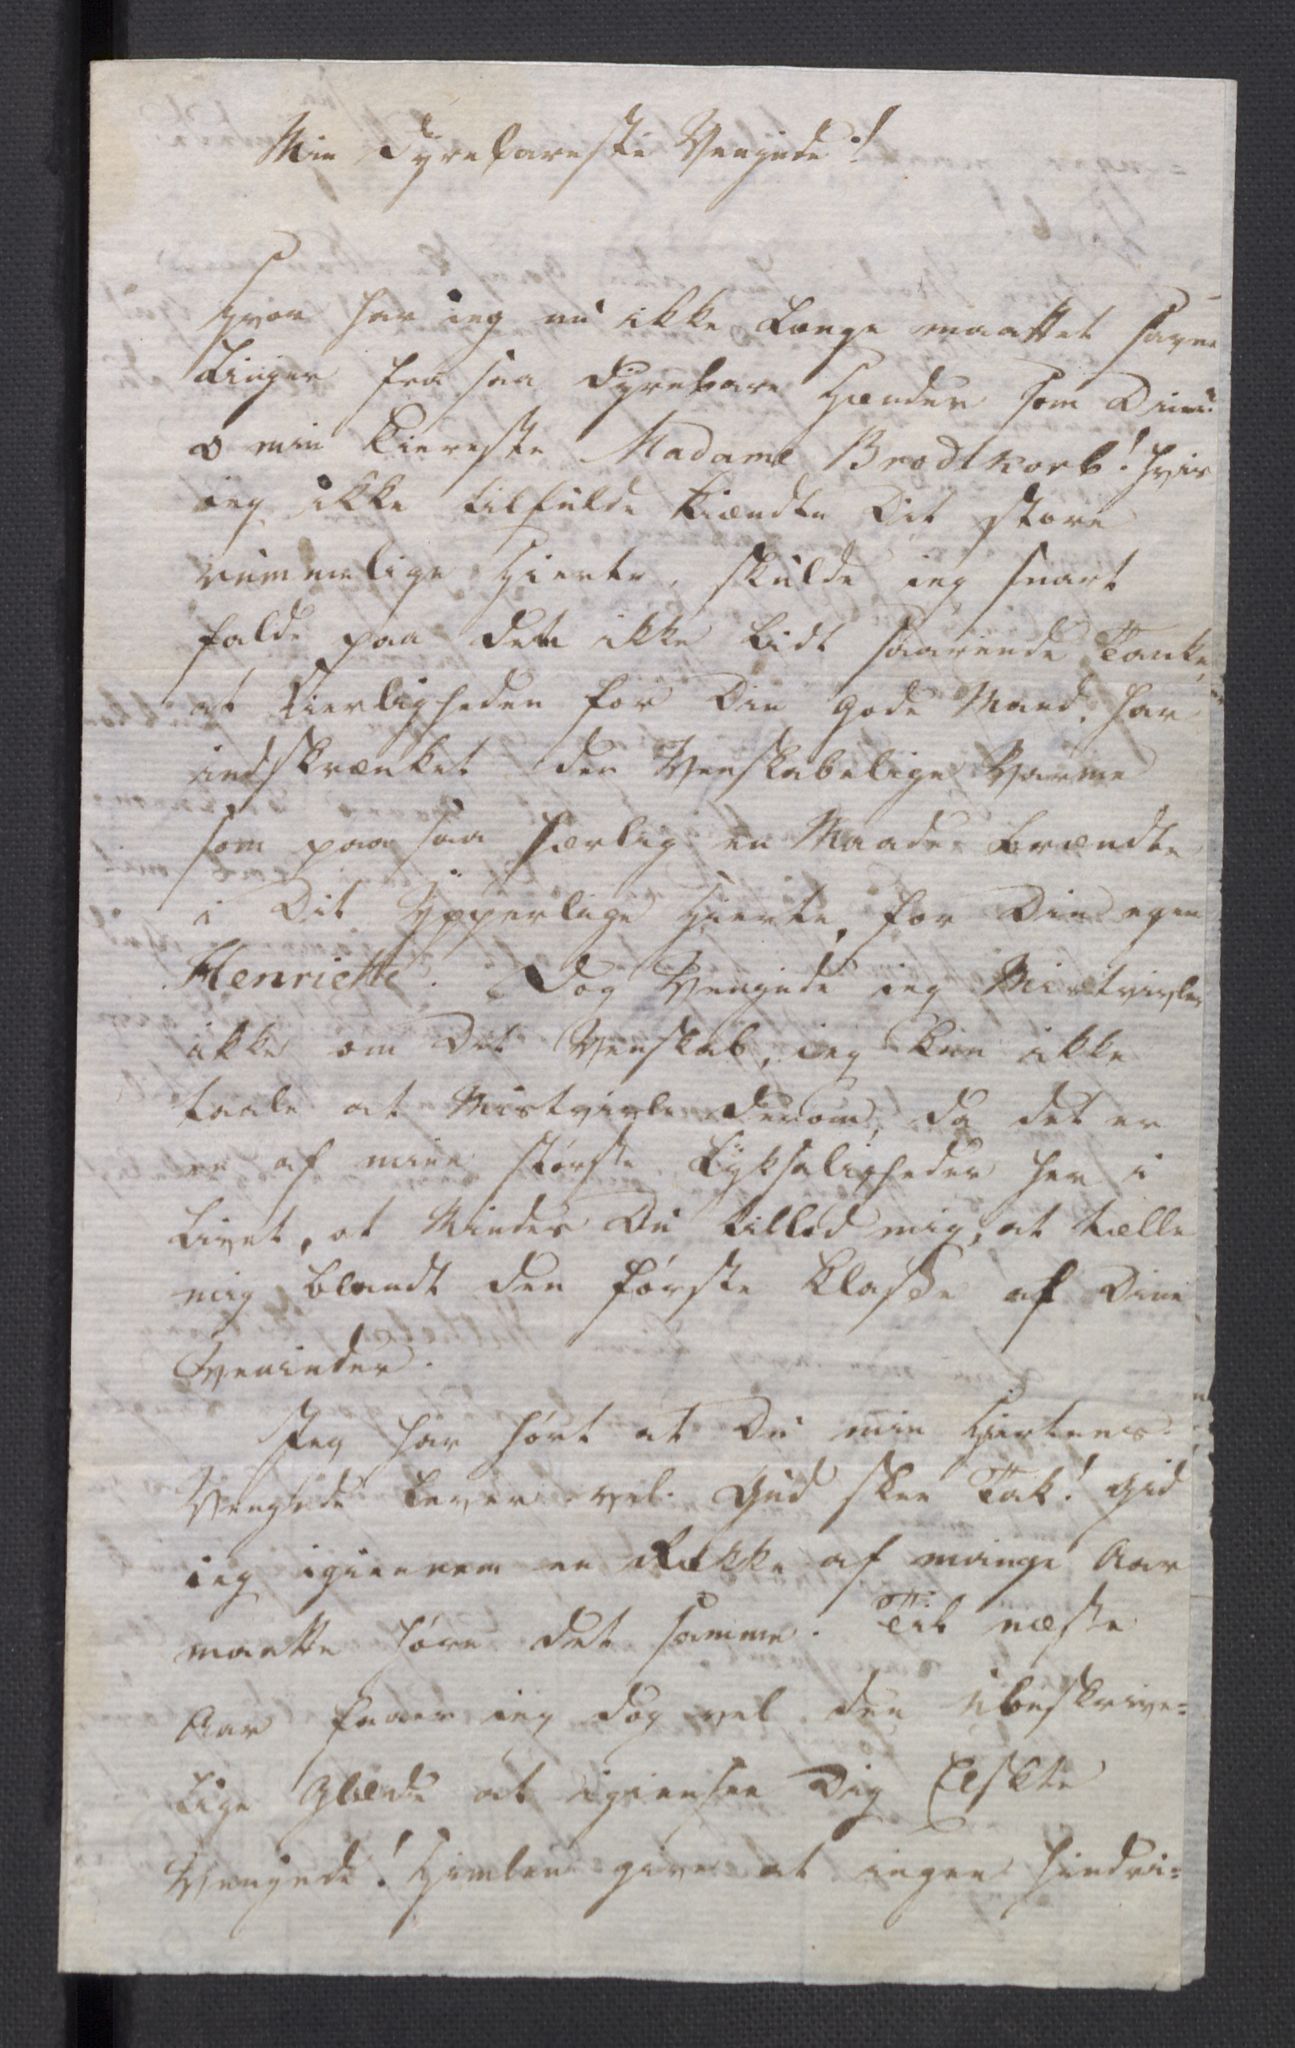 Min dyrebareste Veninde!
Hvor har ieg nu ikke længe maattet savne
Linier fra saa dyrebare Hænder som Dine
o min kiereste Madame Brodtkorb! hvis
ieg ikke tilfulde kiændte Dit store
rummelige Hierte, skulde ieg snart
falde paa den ikke lidt saarende Tanke,
at Kierligheden for Din gode Mand, har
indskrænket den Venskabelige Varme
som paa saa herlig en Maade brændte
i Dit Ypperlige Hierte, for Din egen
Henriette. Dog Veninde ieg Mistvivler
ikke om Dit Venskab, ieg kan ikke
taale at Mistvivle derom, da det er
en af mine største Lyksaligheder her i
Livet, at Mindes Du tillod mig, at tælle
mig blandt den første Klasse af Dine
Veninder.
Jeg har hørt at Du min Hiertens
Veninde lever vel. Gud skee Tak! Gid
ieg igiennem en Række af mange Aar
maatte høre det samme. Til næste
Aar faaer ieg dog vel den ubeskrive=
lige Glæde at igiensee Dig Elskte
Veninde! Himlen give at ingen Hindri=